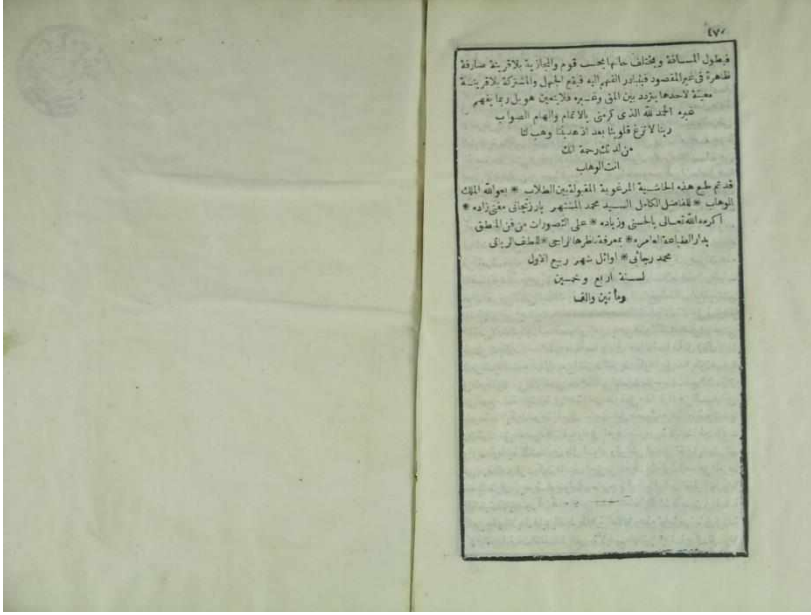 ٤٧٠
فيطول المسافة ويختلف حالها بحسب قوم والمجازية بلا قرينة صارفة
ظاهرة في غير المقصود فيتبادر الفهم اليه فيقع الجهل والمشتركة بلا قرينة
معينة لاحدها يتردد بين المعنى وغيره فلا يتعين هو بل ربما يفهم
غيره الحمد لله الذى كرمنى بالاتمام والهام الصواب
ربنا لا تزغ قلوبنا بعد اذ هديتنا وهب لنا
من لدنك رحمة انك
انت الوهاب
قد تم طبع هذه الحاشية المرغوبة المقبولة بين الطلاب * بعون الله الملك
الوهاب * للفاضل الكامل السيد محمد المشتهر بارزنجانى مفتى زاده *
اكرمه الله تعالى بالحسنى وزياده * على التصورات من فن المنطق
بدار الطباعة العامره * بمعرفة ناظرها الراجى * للطف الربانى
محمد رجائى * اوائل شهر ربيع الاول
لسنة اربع وخمسين
ومأتين والف